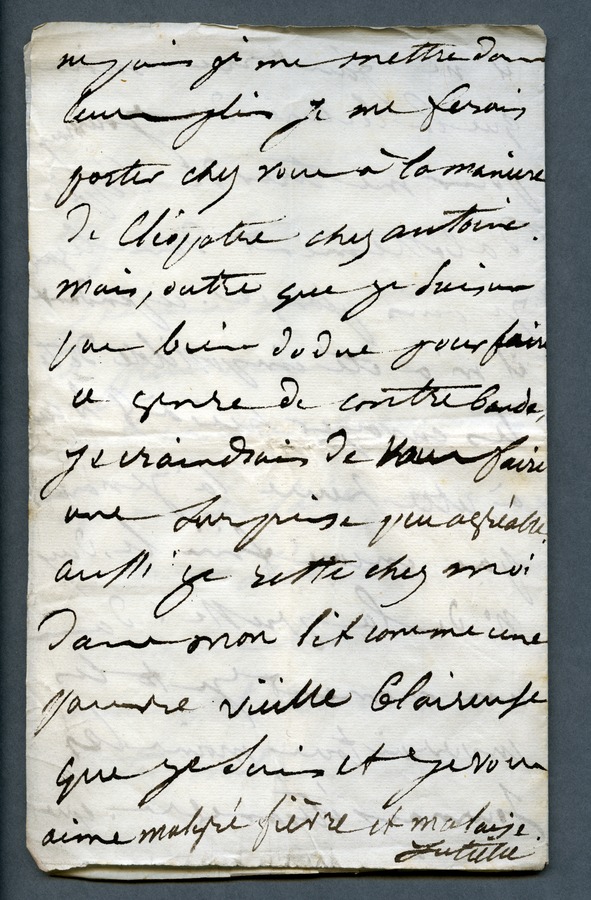 ne puis je me mettre dans
leurs plis je me ferais
porter chez vous à la manière
de Cléopatre chez antoine.
mais, outre que je suis un
peu bien dodue pour faire
ce genre de contrebande,
je craindrais de vous faire
une surprise peu agréable.
aussi je reste chez moi
dans mon lit comme une
pauvre vieille
que je suis et je vous
aime malgré fièvre et malaise.